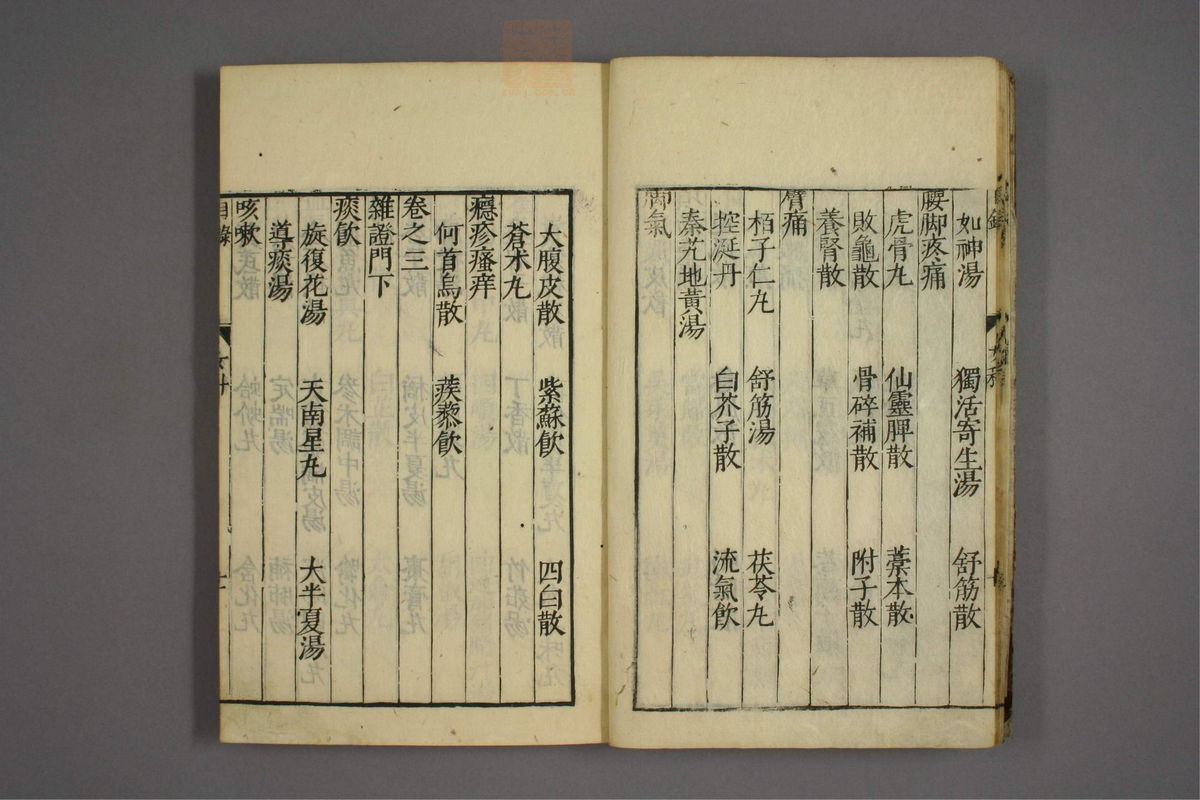 如神湯　獨活寄生湯　舒筋散
腰脚疼痛
虎骨丸　仙靈脾散　藁本散
敗龜散　骨碎補散　附子散
養腎散
臂痛
栢子仁丸　舒筋湯　茯苓丸
控涎丹　白芥子散　流氣飲
秦艽地黄湯
脚氣
大腹皮散　紫蘇飲　四白散
蒼术丸
癮疹瘙痒
何首烏散　蒺藜飲
卷之三
雜證門下
痰飲
旋復花湯　天南星丸　大半夏湯
導痰湯
咳嗽
目錄